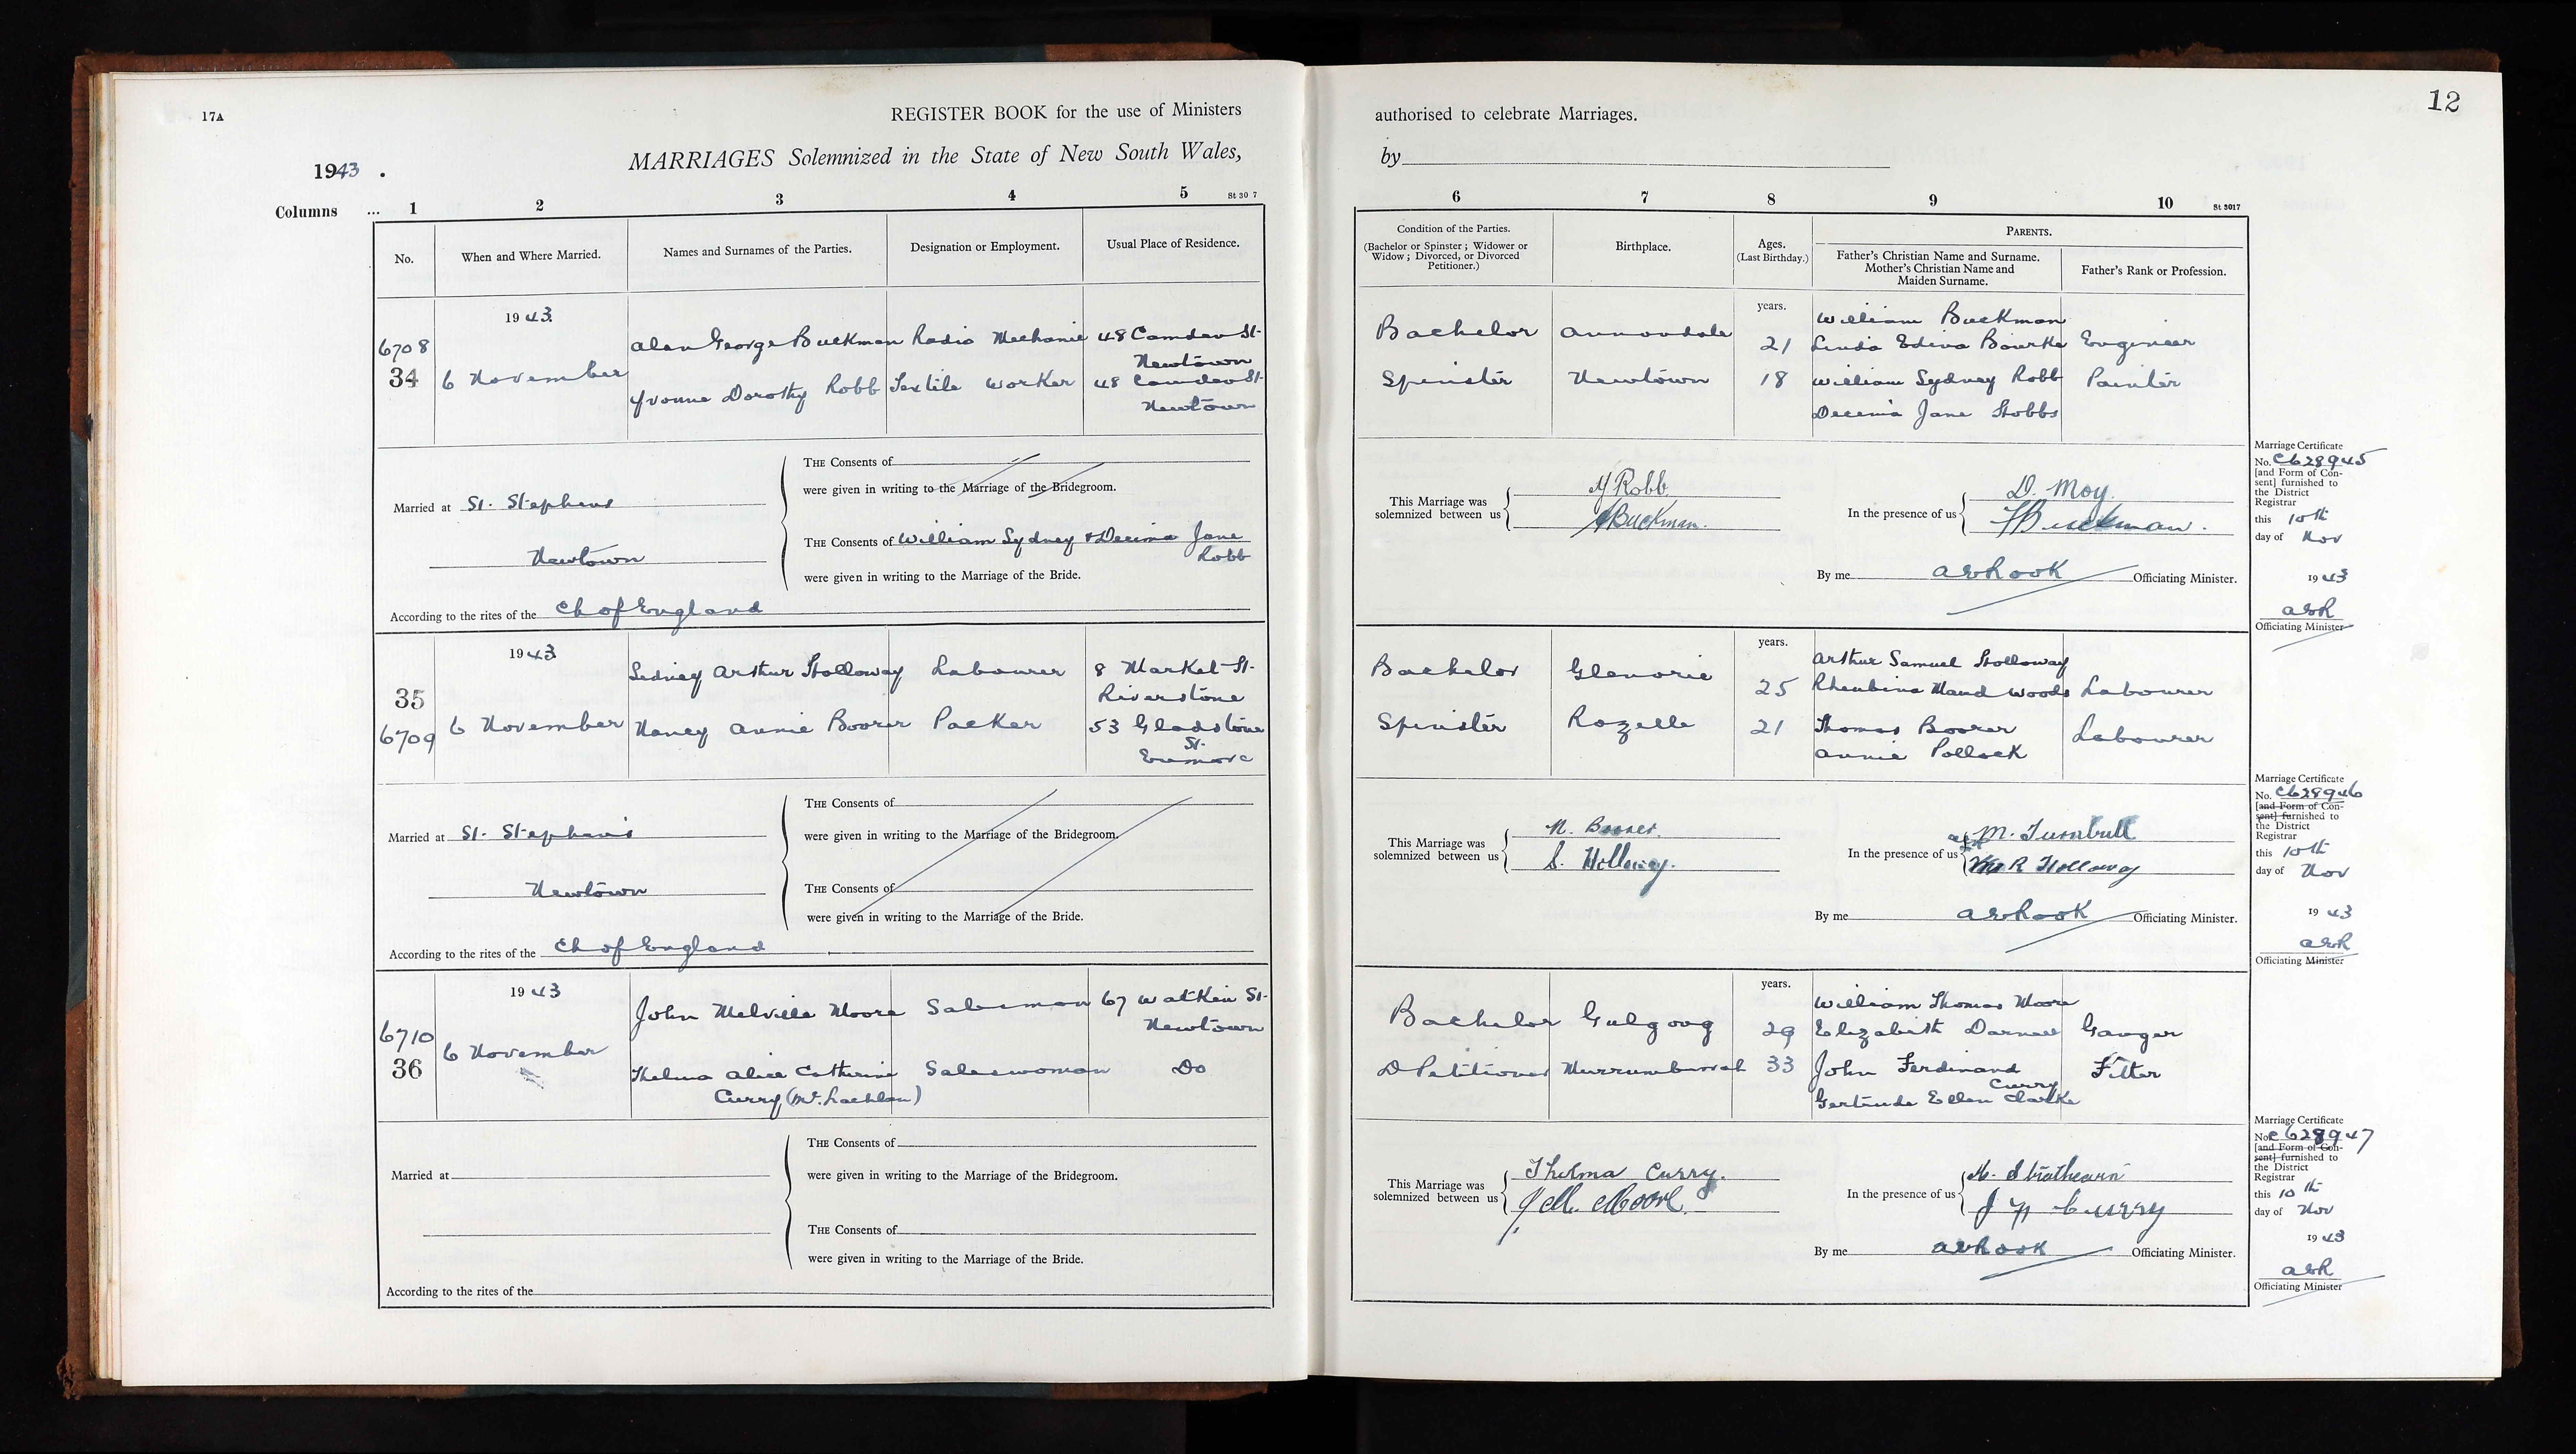 17A
REGISTER BOOK for the use of Ministers
1943 .
MARRIAGES Solemnized in the State of New South Wales,
Columns ... 1 2 3 4 5 St 30 7
No. When and Where Married. Names and Surnames of the Parties. Designation or Employment. Usual Place of Residence.
1943
6708
34
6 November
Alan George Buckman Radio Mechanic 48 Camden St.
Newtown
Yvonne Dorothy Robb Textile Worker 48 Camden St.
Newtown
THE Consents of
were given in writing to the Marriage of the Bridegroom.
Married at St. Stephens
Newtown
THE Consents of William Sydney & Decima Jane
Robb
were given in writing to the Marriage of the Bride.
According to the rites of the Ch of England
1943
35
6709
6 November
Sidney Arthur Holloway Labourer 8 Market St.
Riverstone
Nancy Annie Boorer Packer 53 Gladstone
St.
Enmore
THE Consents of
were given in writing to the Marriage of the Bridegroom.
Married at St. Stephen's
Newtown
THE Consents of
were given in writing to the Marriage of the Bride.
According to the rites of the Ch of England
1943
6710
36
6 November
John Melville Moore Salesman 67 Watkin St.
Newtown
Thelma Alice Catherine Saleswoman Do
Curry (McLachlan)
THE Consents of
were given in writing to the Marriage of the Bridegroom.
Married at
THE Consents of
were given in writing to the Marriage of the Bride.
According to the rites of the
12
authorised to celebrate Marriages.
by
6 7 8 9 10 St 3017
Condition of the Parties.
(Bachelor or Spinster ; Widower or
Widow ; Divorced, or Divorced
Petitioner.)
Birthplace.
Ages.
(Last Birthday.)
PARENTS.
Father's Christian Name and Surname.
Mother's Christian Name and
Maiden Surname.
Father's Rank or Profession.
years.
Bachelor Annandale 21 William Buckman
Linda Edina Bourke Engineer
Spinster Newtown 18 William Sydney Robb Painter
Decima Jane Hobbs
This Marriage was
solemnized between us
Y Robb
Buckman.
In the presence of us
D. Moy.
Buckman.
By me A W Rook Officiating Minister.
Marriage Certificate
No. C628945
[and Form of Con-
sent] furnished to
the District
Registrar
this 10th
day of Nov
1943
AWR
Officiating Minister
years.
Bachelor Glenorie 25 Arthur Samuel Holloway
Rheubina Maud Woods Labourer
Spinster Rozelle 21 Thomas Boorer
Annie Pollock Labourer
This Marriage was
solemnized between us
N. Boorer.
S. Holloway.
In the presence of us
M. Turnbull
R Holloway
By me A W Rook Officiating Minister.
Marriage Certificate
No. C628946
[and Form of Con-
sent] furnished to
the District
Registrar
this 10th
day of Nov
1943
AWR
Officiating Minister
years.
Bachelor Gulgong 29 William Thomas Moore
Elizabeth Ganger
D Petitioner Murrumburrah 33 John Ferdinand
Curry
Fitter
Gertrude Ellen Clarke
This Marriage was
solemnized between us
Thelma Curry.
J M. Moore.
In the presence of us
Strathearn
J F Curry
By me A W Rook Officiating Minister.
Marriage Certificate
No. C628947
[and Form of Con-
sent] furnished to
the District
Registrar
this 10th
day of Nov
1943
AWR
Officiating Minister